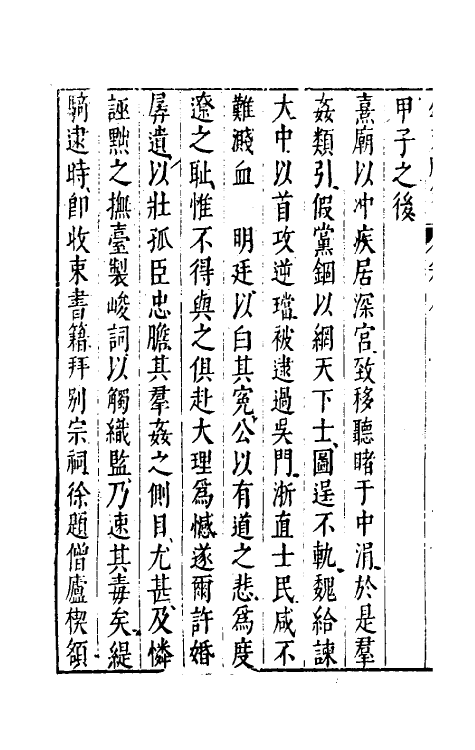 甲子之後
熹廟以冲疾居深宮致移聽睹于中涓於是羣
姦類引假黨錮以網天下士圖逞不軌魏給諫
大中以首攻逆璫被逮過吳門浙直士民咸不
難濺血　明廷以白其冤公以有道之悲爲度
遼之恥惟不得與之俱赴大理爲憾遂爾許婚
孱遺以壯孤臣忠膽其羣姦之側目尤甚及憐
誣黙之撫臺製峻詞以觸織監乃速其毒矣緹
騎逮時即收束書籍拜別宗祠徐題僧廬楔額